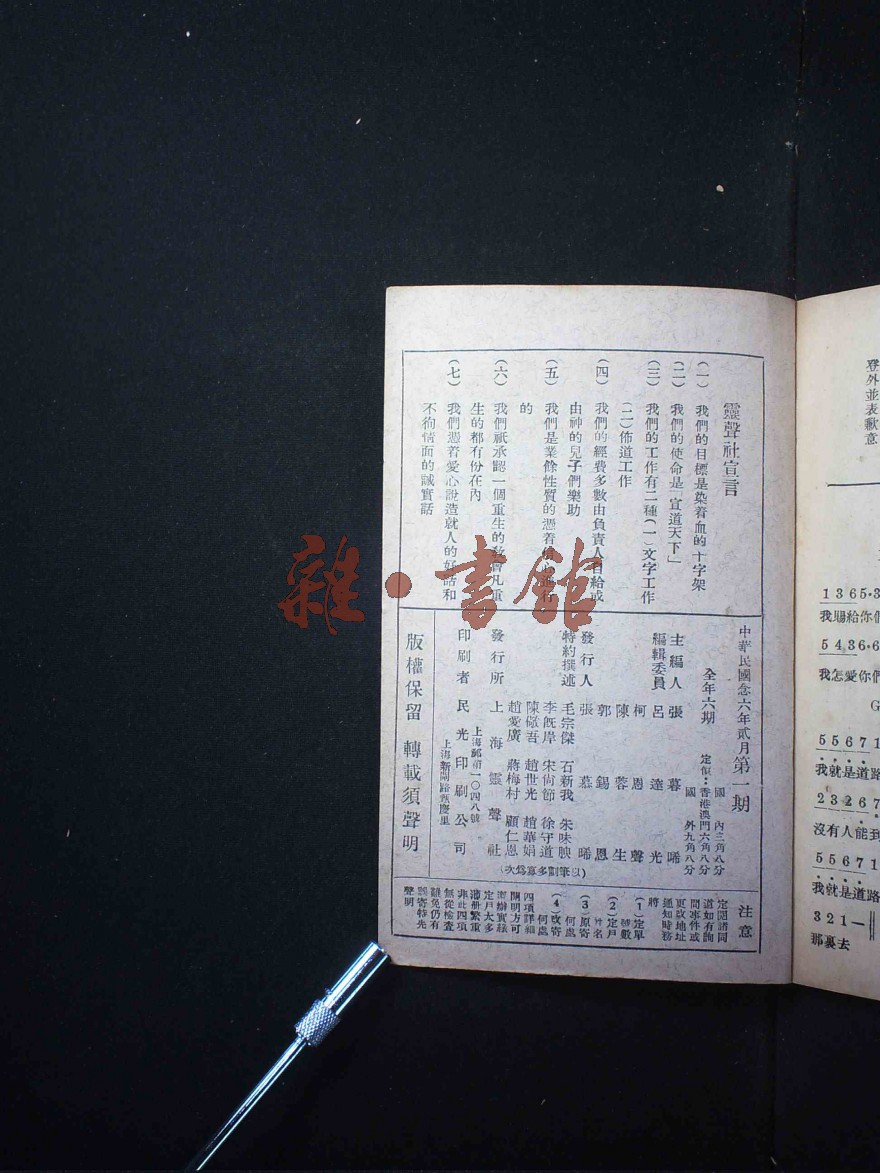 靈聲社宣言
(一) 我們的目標是染着血的十字架
(二) 我們的使命是「宣道天下」
(三) 我們的工作有二種(一)文字工作
(二)佈道工作
(四) 我們的經費多數由負責人自給或
由神的兒子們樂助
(五) 我們是業餘性質的憑着
的
(六) 我們祇承認一個重生的教會凡重
生的都有份在內
(七) 我們憑着愛心說造就人的好話和
不徇情面的誠實話
中華民國念六年貳月第一期
全年六期 定價
國內三角八分
香港澳門六角八分
國外九角八分
主編人 張慕晞
編輯委員 呂達光
柯恩聲
陳蓉生
郭錫恩
發行人 張慕晞
特約撰述 毛宗傑 石新我 朱味腴
李既岸 宋尙節 徐守道
陳儆吾 趙世光 趙華娟
趙愛廣 蔣梅村 顧仁恩
(以筆劃多寡爲次)
發行所 上海靈聲社
上海郵箱一〇四八號
印刷者 民光印刷公司
上海新閘路
版權保留 轉載須聲明
注意
定閱諸同
道如有詢
問事件或
更改地址
通知時務
將
(1)定單
號數
(2)定戶
姓名
(3)原寄
何處
(4)改寄
何處
四項詳細
開明方可
照辦實緣
定戶太多
簿册繁重
非此四項
無從檢查
難免仍有
誤寄特先
聲明
登外並表歉意
1 3 6 5·3
我賜給你們
5 4 3 6·6
我怎愛你們
G
5 5 6 7 1
我就是道路
2 3 2 6 7
沒有人能到
5 5 6 7 1
我就是道路
3 2 1 —
那裏去
雜·書館